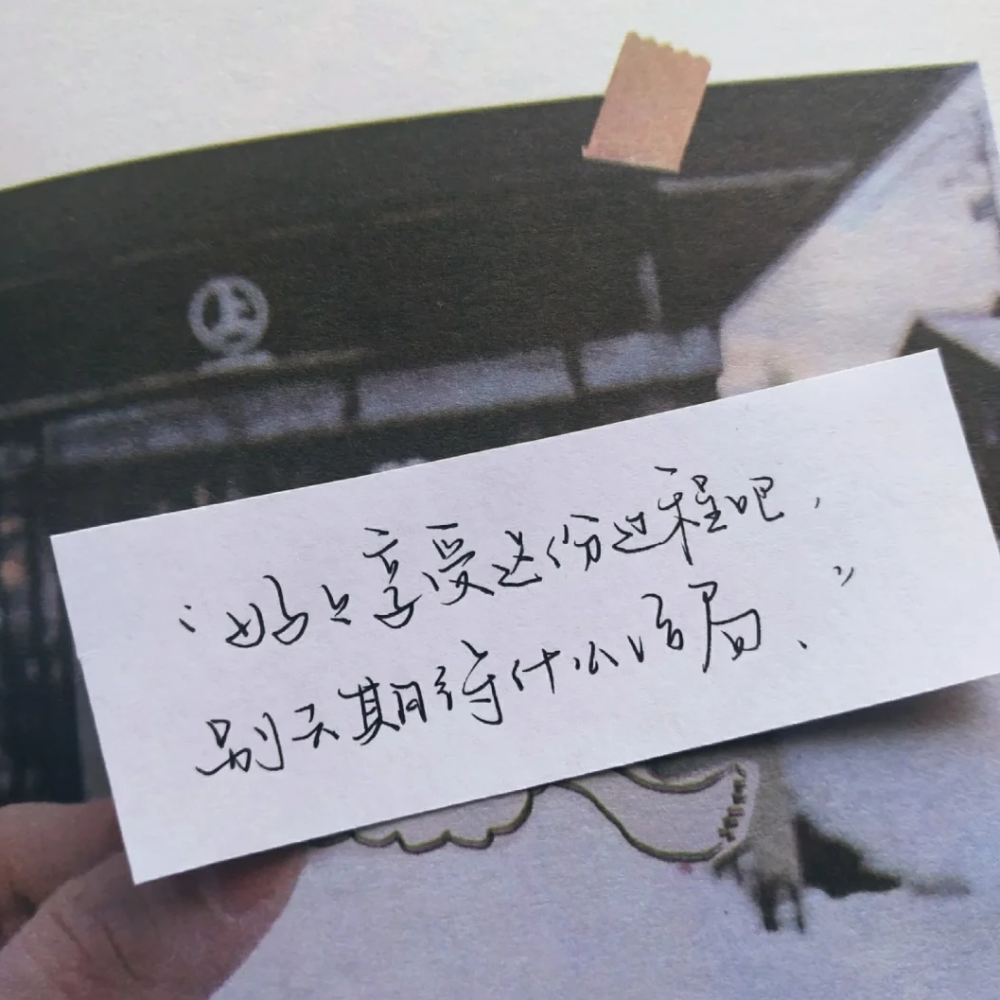 “好只享受这份过程吧,
别去期待什么结局、”